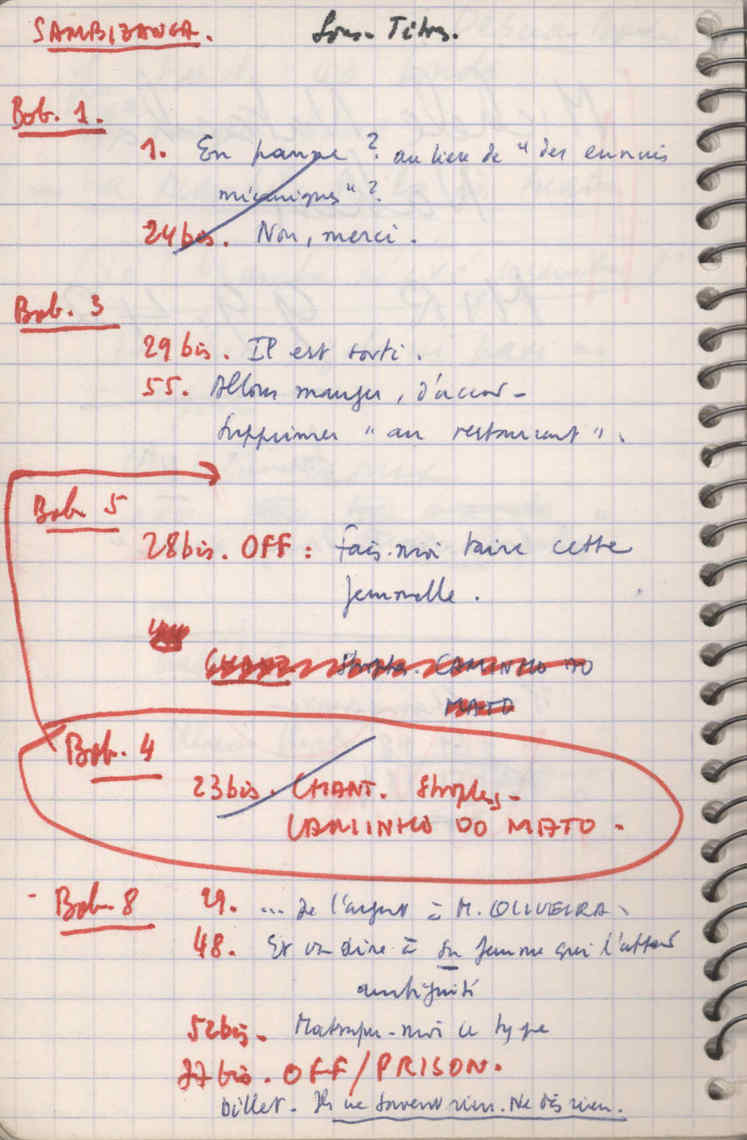 SAMBIZANGA. Sous-Titres.
Bob. 1.
1. En panne ? au lieu de "des ennuis
mécaniques" ?
24 bis. Non, merci.
Bob. 3
29 bis. Il est sorti.
55. Allons manger, d'accord-
Supprimer "au restaurant".
Bob 5
28 bis. OFF : Fais-moi taire cette
femmelle.
CHANT Strophes. CAMINHO DO
MATO
Bob. 4
23 bis. CHANT. Strophes-
CAMINHO DO MATO.
- Bob. 8 29. ... de l'argent à M. OLIVEIRA.
48. Et va dire à sa femme qui l'attend
ambiguité
52 bis. -moi ce type
77 bis. OFF/PRISON.
billet. Ils ne savent rien. Ne dis rien.